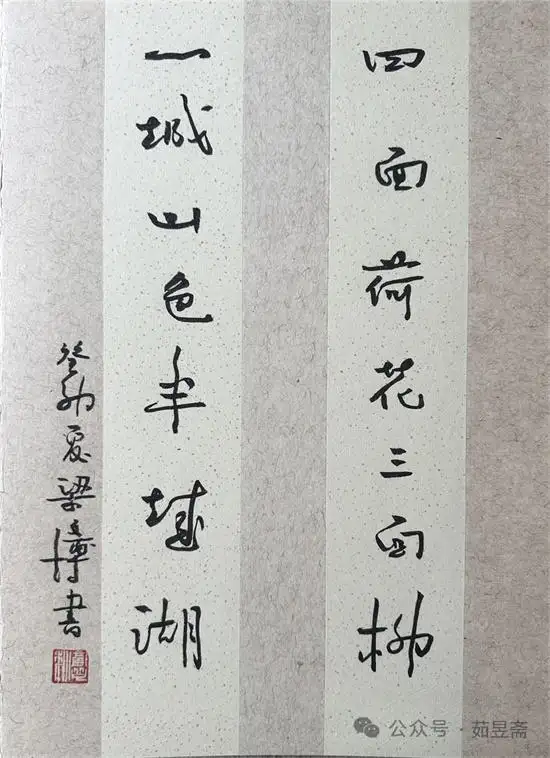 四面荷花三面柳
一城山色半城湖
癸卯夏梁墇书
公众号·茹昱斋